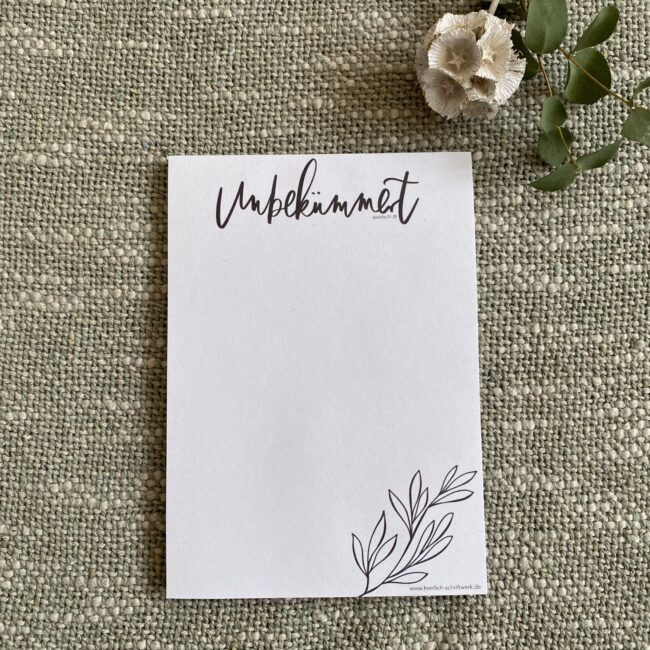 Unbekümmert
www.herrlich-schriftwerk.de